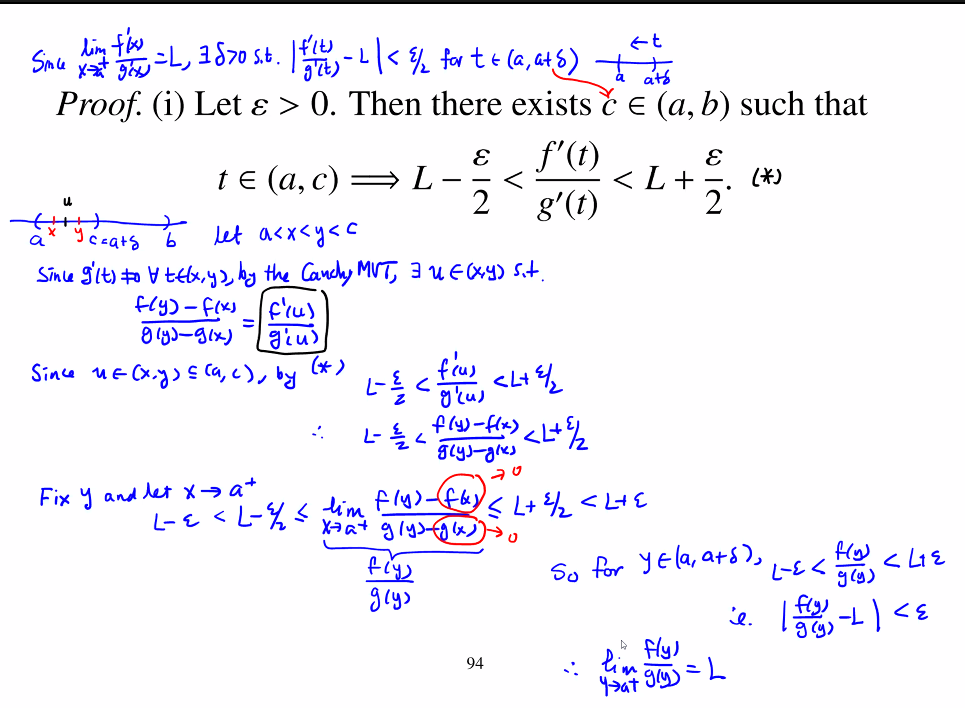 Since lim x→a⁺ f'(x)/g'(x) = L, ∃ δ>0 s.t. |f'(t)/g'(t) - L| < ε/2 for t ∈ (a, a+δ)
← t
a a+δ
Proof. (i) Let ε > 0. Then there exists c ∈ (a, b) such that
t ∈ (a, c) ⟹ L − ε/2 < f′(t)/g′(t) < L + ε/2. (*)
u
a x y c=a+δ b
Let a<x<y<c
Since g'(t) ≠ 0 ∀ t∈(x,y), by the Cauchy MVT, ∃ u ∈ (x,y) s.t.
f(y) - f(x) / g(y) - g(x) = f'(u) / g'(u)
Since u ∈ (x,y) ⊆ (a,c), by (*)
L - ε/2 < f'(u)/g'(u) < L + ε/2
∴ L - ε/2 < f(y)-f(x) / g(y)-g(x) < L + ε/2
Fix y and let x → a⁺
L - ε < L - ε/2 ≤ lim x→a⁺ f(y) - f(x) / g(y) - g(x) ≤ L + ε/2 < L + ε
→ 0
→ 0
f(y)/g(y)
So for y ∈ (a, a+δ), L-ε < f(y)/g(y) < L+ε
i.e. |f(y)/g(y) - L| < ε
∴ lim y→a⁺ f(y)/g(y) = L
94